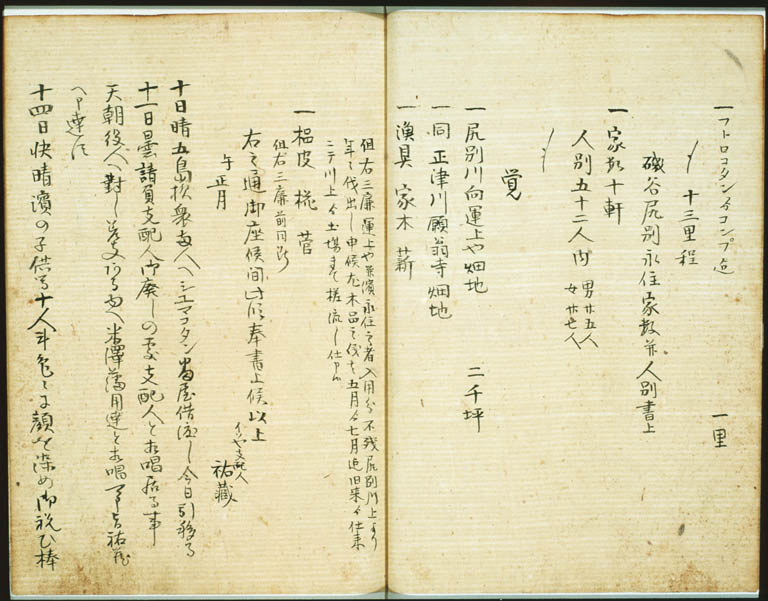 一フトロコタンゟコンプ迄 一里
〆十三里程
磯谷尻別永住家数并人別書上
一 家数十軒
人別五十二人内 男廿五人
女廿七人
〆
覚
一 尻別川向運上や畑地 二千坪
一 同 正津川願翁寺畑地
一 漁具 家木 薪
但右三廉運上や並濱永住之者入用分不残尻別川上より
年々伐出し申候尤木品之伐方五月ゟ七月迄旧来ゟ仕来
ニテ川上ゟ土場まて槎流し仕候
一 榀皮 椛 菅
但右三廉前同断
右之通御座候間此段奉書上候以上
午正月 イソヤ支配人
祐藏
十日晴五島松衆両人へシエマコタン番屋借渡し今日引移る
十一日曇請負支配人御廃しの処支配人と相唱居る事
天朝役人へ對し 米澤藩用達と相唱 祐藏
へ申達ス
十四日快晴濱の子供等十人斗色々に顔を染め御祝ひ棒